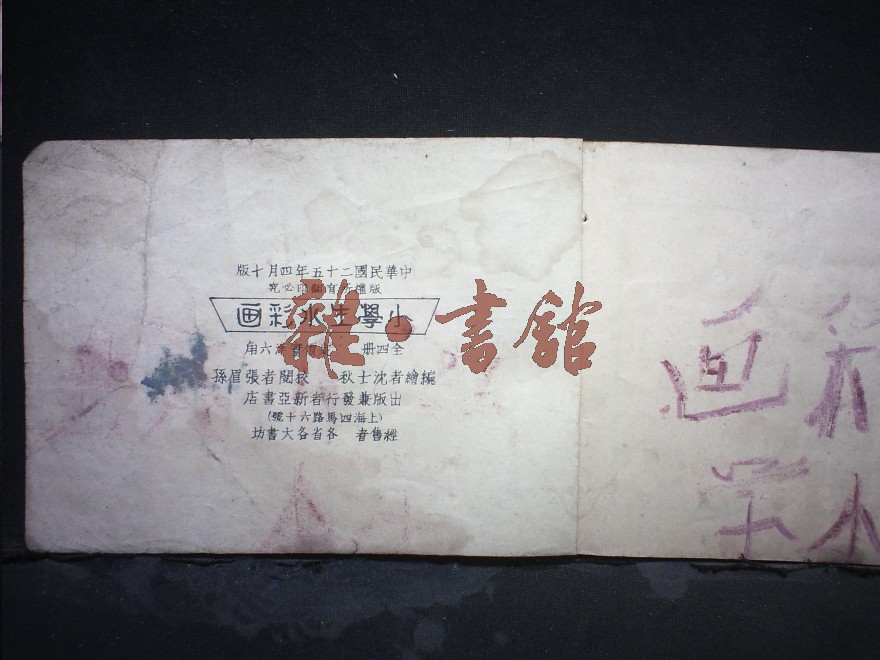 中華民國二十五年四月十版
版權所有翻印必究
小學生水彩画
全四册 六角
編繪者沈士秋 校閱者張眉孫
出版兼發行者新亞書店
(上海四馬路六十號)
經售者 各省各大書坊
雜·書館
彩画
小学